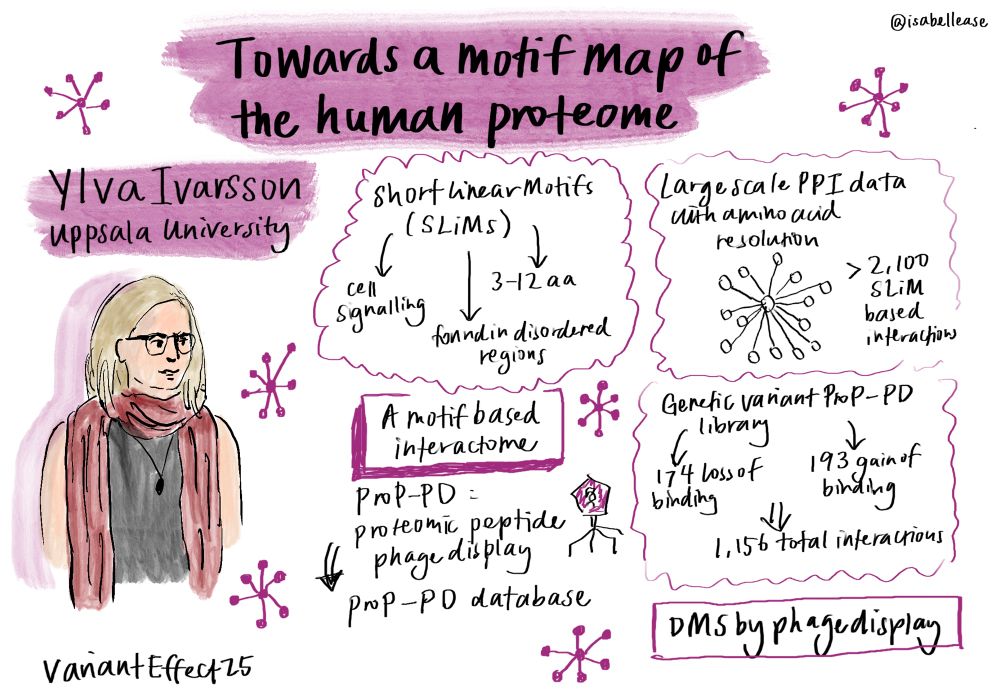 @isabellease
Towards a motif map of
the human proteome
Ylva Ivarsson
Uppsala University
Short Linear Motifs
(SLiMs)
cell
signalling
3-12 aa
found in disordered
regions
Large scale PPI data
with amino acid
resolution
> 2,100
SLiM
based
interactions
A motif based
interactome
ProP-PD =
proteomic peptide
phage display
ProP-PD database
Genetic variant ProP-PD
library
174 loss of
binding
193 gain of
binding
1,156 total interactions
DMS by phage display
Variant Effect 25